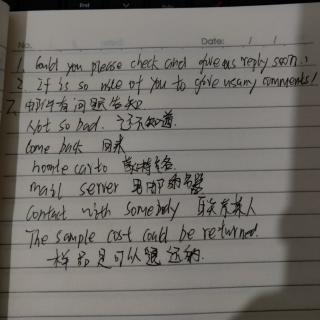 No.
Date: / /
1. Could you please check and give us reply soon.
2. It is so nice of you to give us any comments!
7. 邮件有问题告知
Not so bad. 还不知道
Come back 回来
mail server 邮件服务器
Contact with somebody 联系某人
The sample cost could be returned.
样品是可以退还的.